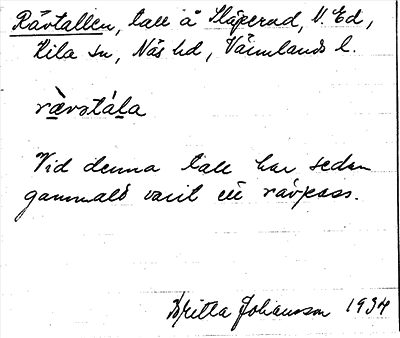 Rävtallen, tall å Släperud, V. Ed,
Kila sn, Näs hd, Värmlands l.
rȁvstála
Vid denna tall har sedan
gammalt varit ett rävpass.
Britta Johansson 1934